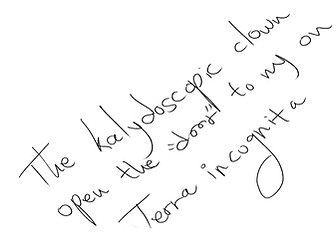 The kalydoscopic clown
open the "door" to my on
Terra incognita